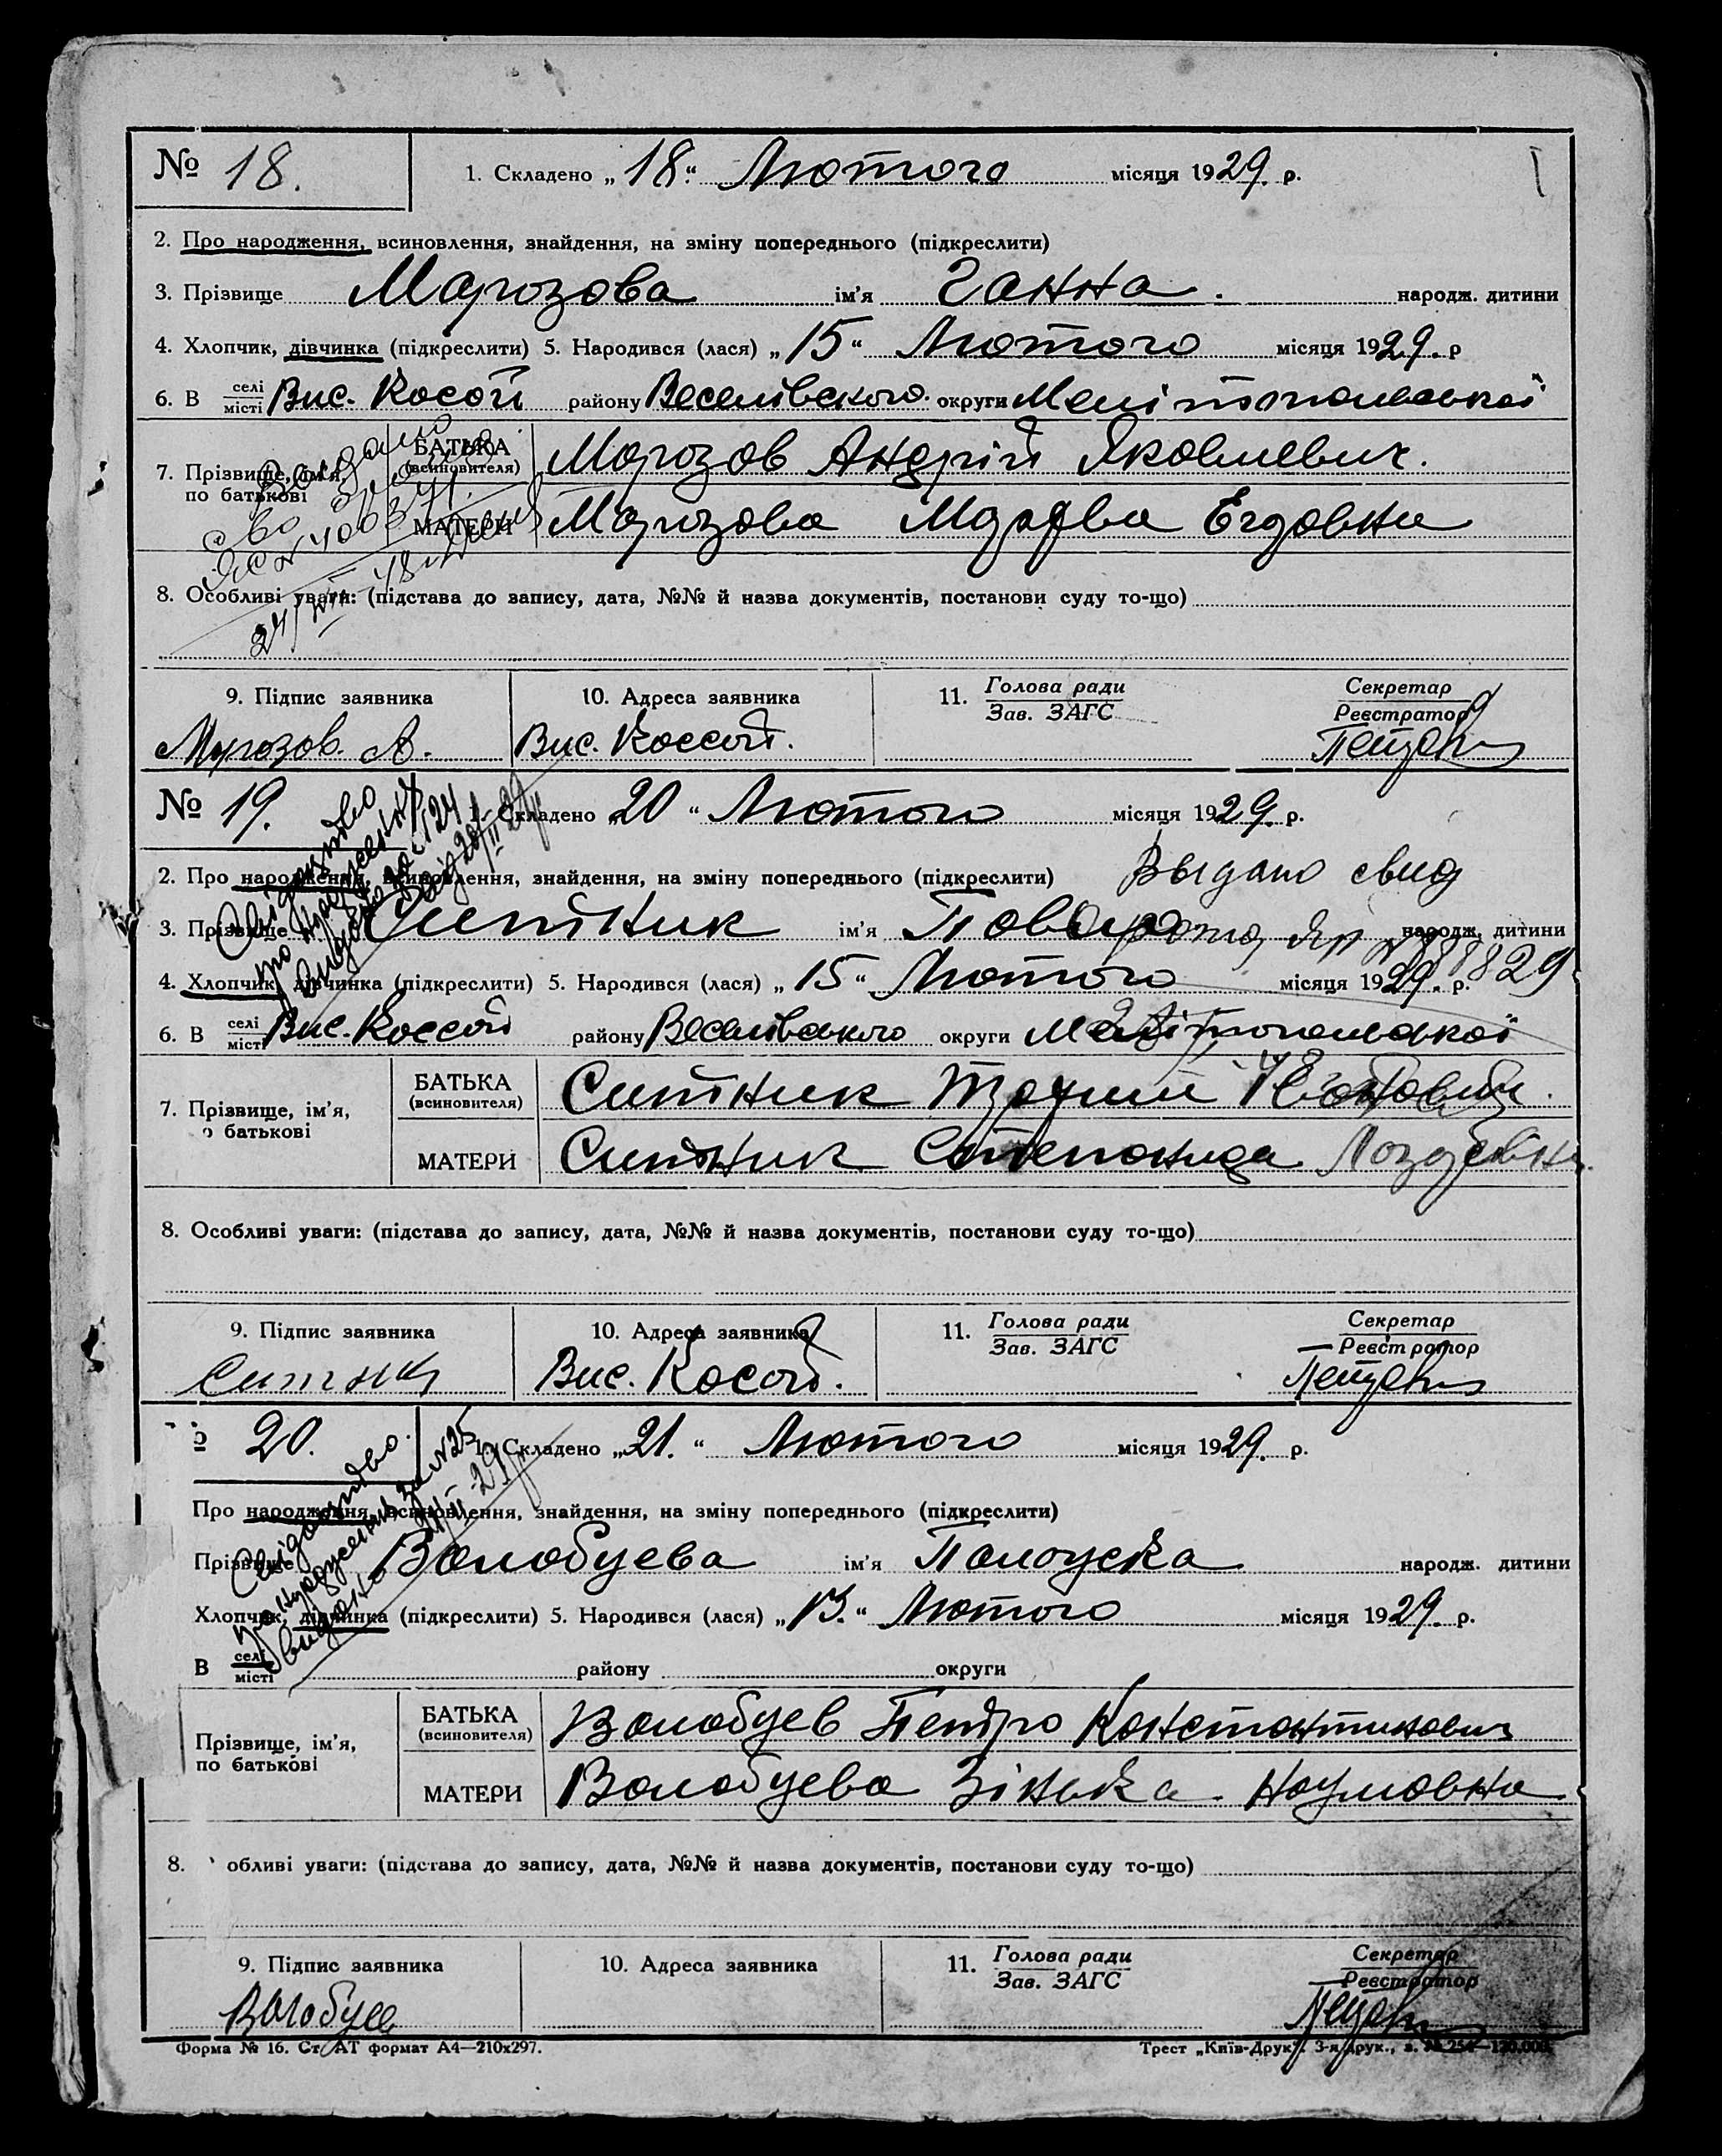 № 18. 1. Складено „18“ Лютого місяця 1929. р.
2. Про народження, всиновлення, знайдення, на зміну попереднього (підкреслити)
3. Прізвище Марозова ім'я Ганна. народж. дитини
4. Хлопчик, дівчинка (підкреслити) 5. Народився (лася) „15“ Лютого місяця 1929. р
6. В селі місті Вис. Косой району Веселівського округи Мелітопольської
7. Прізвище, ім'я, по батькові БАТЬКА (всиновителя) Марозов Андрій Яковлевич.
МАТЕРИ Марозова
8. Особливі уваги: (підстава до запису, дата, №№ й назва документів, постанови суду то-що)
9. Підпис заявника 10. Адреса заявника 11. Голова ради Зав. ЗАГС Секретар Реєстратор
Морозов. А. Вис. Коссой.
№ 19. 1. Складено „20“ Лютого місяця 1929. р.
Выдано свид
2. Про народження, всиновлення, знайдення, на зміну попереднього (підкреслити)
3. Прізвище Ситник ім'я народж. дитини
4. Хлопчик, дівчинка (підкреслити) 5. Народився (лася) „15“ Лютого місяця 1929. р.
6. В селі місті Вис. Коссой району Веселівського округи Мелітопольської
7. Прізвище, ім'я, по батькові БАТЬКА (всиновителя) Ситник
МАТЕРИ Ситник Степанида
8. Особливі уваги: (підстава до запису, дата, №№ й назва документів, постанови суду то-що)
9. Підпис заявника 10. Адреса заявника 11. Голова ради Зав. ЗАГС Секретар Реєстратор
Ситник Вис. Косой.
20. 1. Складено „21.“ Лютого місяця 1929. р.
Свідоцтво про народження за № 25 видано
Про народження, всиновлення, знайдення, на зміну попереднього (підкреслити)
Прізвище Волобуева ім'я народж. дитини
Хлопчик, дівчинка (підкреслити) 5. Народився (лася) „13.“ Лютого місяця 1929. р.
В селі місті району округи
Прізвище, ім'я, по батькові БАТЬКА (всиновителя) Волобуев Петро Константинович
МАТЕРИ Волобуева Зінька Наумовна
8. обливі уваги: (підстава до запису, дата, №№ й назва документів, постанови суду то-що)
9. Підпис заявника 10. Адреса заявника 11. Голова ради Зав. ЗАГС Секретар Реєстратор
Волобуев
Форма № 16. Ст АТ формат А4—210х297. Трест „Київ-Друк“. 3-я друк., з. № 254—120.000.